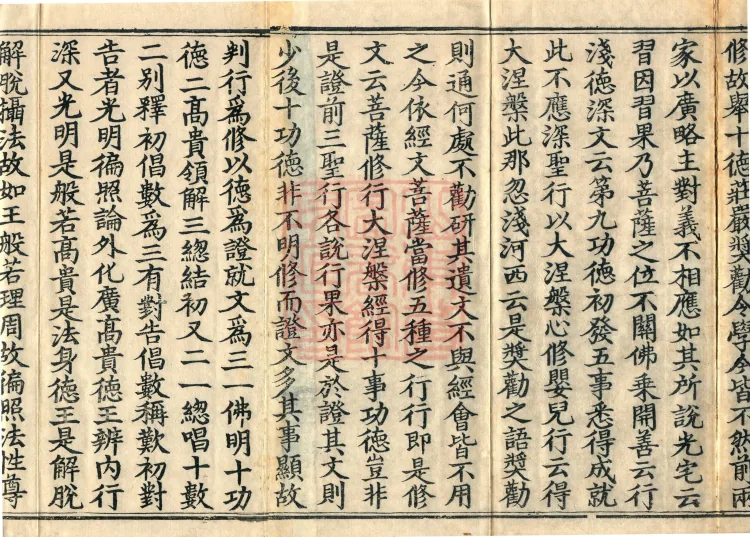 修故舉十德莊嚴奬勸令學今皆不然前兩
家以廣略主對義不相應如其所說光宅云
習因習果乃菩薩之位不關佛乗開善云行
淺德深文云第九功德初發五事悉得成就
此不應深聖行以大涅槃心修嬰兒行云得
大涅槃此那忽淺河西云是奬勸之語奬勸
則通何處不勸研其遺文不與經會皆不用
之今依經文菩薩當修五種之行行即是修
文云菩薩修行大涅槃經得十事功德豈非
是證前三聖行各說行果亦是於證其文則
少後十功德非不明修而證文多其事顯故
判行爲修以德爲證就文爲三一佛明十功
德二髙貴領解三總結初又二一總唱十數
二別釋初倡數爲三有對告倡數稱歎初對
告者光明徧照論外化廣髙貴德王辨内行
深又光明是般若髙貴是法身德王是解脫
解脫攝法故如王般若理周故徧照法性尊